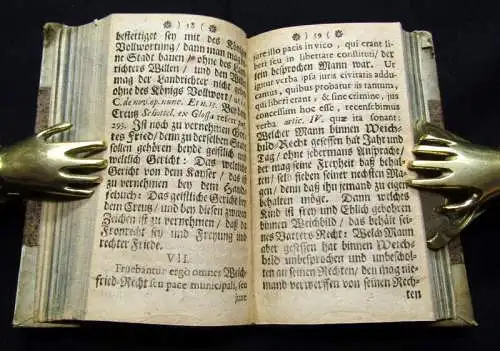 ) 18 (
befestiget sey mit des Königs
Vollwortung / dann mag keine
Stadt bauen / ohne des Land
richters Willen / und den Willen
mag der Landrichter nicht
ohne des Königs Vollwort / ut
C. de nov. op. nunc. Et n. 15.
Creutz Schottel. ex Glossa refert
295. Ist noch zu vernehmen Got-
tes Fried / denn zu derselben Stadt
sollen gehören beyde geistlich und
weltlich Gericht: Das weltliche
Gericht von dem Kayser / das ist
zu vernehmen bey dem Hand-
schuch: Das geistliche Gericht bey
dem Creutz / und bey diesen zweyen
Zeichen ist zu vernehmen / daß da
Fronrecht sey und Freyung und
rechter Friede.
VII.
Fruebantur ergo omnes Weich-
fried-Recht seu pace municipali, seu
jure
) 19 (
jure illo pacis in vico, qui erant li-
beri seu in libertate constituti / der
besprochen Mann war. Ut
igitur verba ipsa juris civitatis addu-
camus, quibus probatur is tantum,
qui liberi erant, & sine crimine, jus
concessum hoc esse, recensebimus
verba artic. IV. quæ ita sonant:
Welcher Mann binnen Weich-
bild-Recht gesessen hat Jahr und
Tag / ohne jedermans Ansprache /
der mag seine Freyheit baß behal-
ten / selb sieben seiner nechsten Ma-
gen / denn daß ihn jemand zu eigen
behalten möge. Dann welches
Kind ist frey und Ehlich gebohren
binnen Weichbild / das behält sei-
nes Vatters Recht: Welch Mann
aber gesessen hat binnen Weich-
bild unbesprochen und unbeschol-
ten an seinen Rechten / den mag nie-
mand verwerffen von seinen Rech-
ten